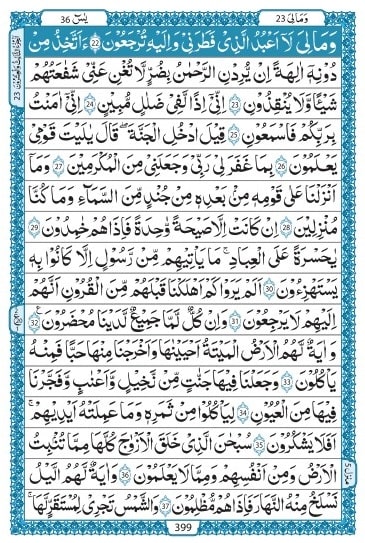 يٰسٓ 36
وَمَالِيَ 23
وَمَالِيَ لَاۤ اَعْبُدُ الَّذِيْ فَطَرَنِيْ وَاِلَيْهِ تُرْجَعُوْنَ 22 ءَاَتَّخِذُ مِنْ
دُوْنِهٖۤ اٰلِهَةً اِنْ يُّرِدْنِ الرَّحْمٰنُ بِضُرٍّ لَّا تُغْنِ عَنِّيْ شَفَاعَتُهُمْ
شَيْـًٔا وَّلَا يُنْقِذُوْنِ 23 اِنِّيْۤ اِذًا لَّفِيْ ضَلٰلٍ مُّبِيْنٍ 24 اِنِّيْۤ اٰمَنْتُ
بِرَبِّكُمْ فَاسْمَعُوْنِ 25 قِيْلَ ادْخُلِ الْجَنَّةَ ؕ قَالَ يٰلَيْتَ قَوْمِيْ
يَعْلَمُوْنَ 26 بِمَا غَفَرَ لِيْ رَبِّيْ وَجَعَلَنِيْ مِنَ الْمُكْرَمِيْنَ 27 وَمَاۤ
اَنْزَلْنَا عَلٰى قَوْمِهٖ مِنْۢ بَعْدِهٖ مِنْ جُنْدٍ مِّنَ السَّمَآءِ وَمَا كُنَّا
مُنْزِلِيْنَ 28 اِنْ كَانَتْ اِلَّا صَيْحَةً وَّاحِدَةً فَاِذَا هُمْ خٰمِدُوْنَ 29
يٰحَسْرَةً عَلَى الْعِبَادِ ۚ مَا يَاْتِيْهِمْ مِّنْ رَّسُوْلٍ اِلَّا كَانُوْا بِهٖ
يَسْتَهْزِءُوْنَ 30 اَلَمْ يَرَوْا كَمْ اَهْلَكْنَا قَبْلَهُمْ مِّنَ الْقُرُوْنِ اَنَّهُمْ
اِلَيْهِمْ لَا يَرْجِعُوْنَ 31 وَاِنْ كُلٌّ لَّمَّا جَمِيْعٌ لَّدَيْنَا مُحْضَرُوْنَ 32
وَاٰيَةٌ لَّهُمُ الْاَرْضُ الْمَيْتَةُ ۖ اَحْيَيْنٰهَا وَاَخْرَجْنَا مِنْهَا حَبًّا فَمِنْهُ
يَاْكُلُوْنَ 33 وَجَعَلْنَا فِيْهَا جَنّٰتٍ مِّنْ نَّخِيْلٍ وَّاَعْنَابٍ وَّفَجَّرْنَا
فِيْهَا مِنَ الْعُيُوْنِ 34 لِيَاْكُلُوْا مِنْ ثَمَرِهٖ ۙ وَمَا عَمِلَتْهُ اَيْدِيْهِمْ ؕ
اَفَلَا يَشْكُرُوْنَ 35 سُبْحٰنَ الَّذِيْ خَلَقَ الْاَزْوَاجَ كُلَّهَا مِمَّا تُنْۢبِتُ
الْاَرْضُ وَمِنْ اَنْفُسِهِمْ وَمِمَّا لَا يَعْلَمُوْنَ 36 وَاٰيَةٌ لَّهُمُ الَّيْلُ ۖ
نَسْلَخُ مِنْهُ النَّهَارَ فَاِذَا هُمْ مُّظْلِمُوْنَ 37 وَالشَّمْسُ تَجْرِيْ لِمُسْتَقَرٍّ لَّهَا ؕ
399